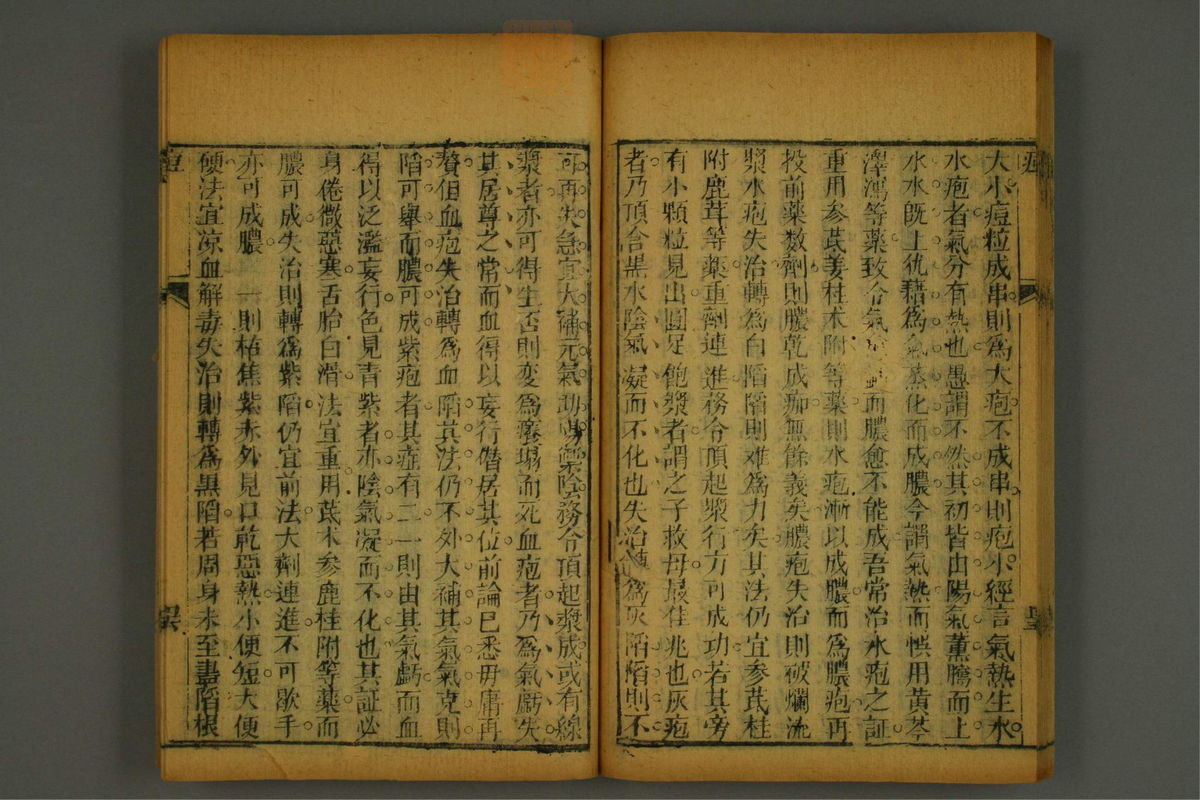 大小痘粒成串則為大疱不成串則疱小經言氣熱生水
水疱者氣分有熱也愚謂不然其初皆由陽氣薰騰而上
水水旣上犹藉為氣蒸化而成膿今謂氣熱而悞用黃芩
澤瀉等藥致令氣而膿愈不能成吾常治水疱之証
重用参芪姜桂木附等藥則水疱漸以成膿而為膿疱再
投前藥数劑則膿乾成痂無餘義矣膿疱失治則破爛流
漿水疱失治轉為白陷陷則难為力矣其法仍宜参芪桂
附鹿茸等藥重劑連進務令頂起漿行方可成功若其旁
有小顆粒見出圓足飽漿者謂之子救母最佳兆也灰疱
者乃頂含黒水陰氣凝而不化也失治轉為灰陷陷則不
可再失急宜大補元氣助陽樂陰務令頂起漿成或有線
漿者亦可得生否則变為癢塌而死血疱者乃為氣虧失
其居尊之常而血得以妄行僭居其位前論已悉毋庸再
贅但血疱失治轉為血陷其法仍不外大補其氣氣克則
陷可舉而膿可成紫疱者其症有二一則由其氣虧而血
得以泛濫妄行色見青紫者亦陰氣凝而不化也其証必
身倦微惡寒舌胎白滑法宜重用芪木参鹿桂附等藥而
膿可成失治則轉為紫陷仍宜前法大劑連進不可歇手
亦可成膿一則枯焦紫赤外見口乾惡熱小便短大便
硬法宜凉血解毒失治則轉為黒陷若周身未至盡陷根